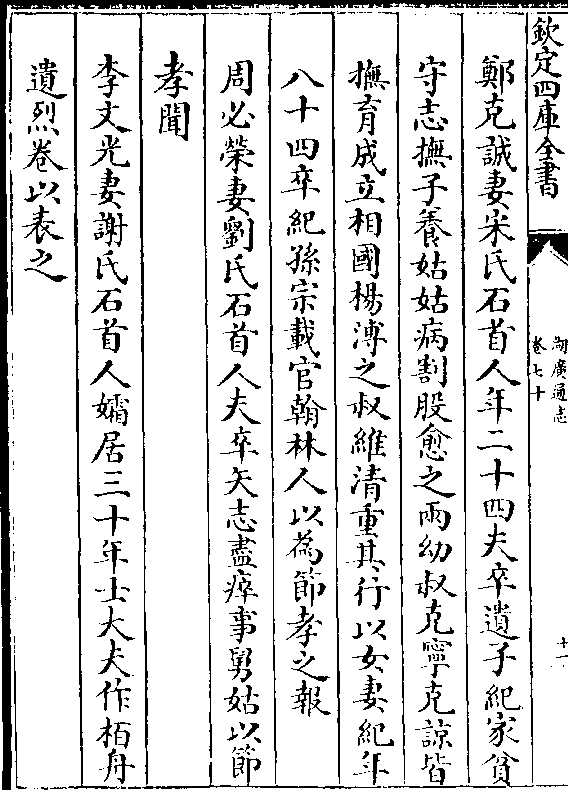 欽定四庫全書
湖廣通志
卷七十
十一
鄭克誠妻宋氏石首人年二十四夫卒遺子紀家貧
守志撫子養姑姑病割股愈之兩幼叔克寧克諒皆
撫育成立相國楊溥之叔維清重其行以女妻紀年
八十四卒紀孫宗載官翰林人以為節孝之報
周必榮妻劉氏石首人夫卒矢志盡瘁事舅姑以節
孝聞
李文光妻謝氏石首人孀居三十年士大夫作栢舟
遺烈卷以表之